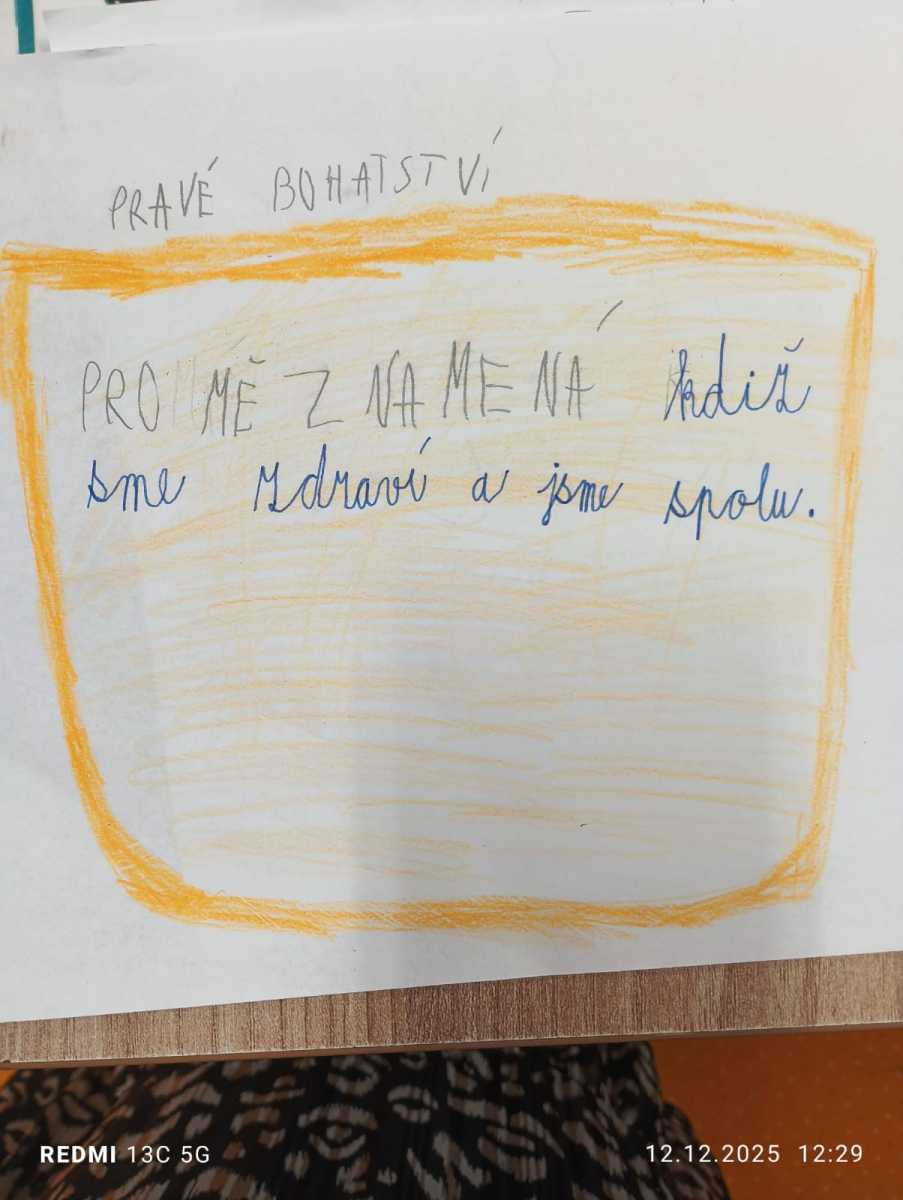 PRAVÉ BOHATSTVÍ
PRO MĚ ZNAMENÁ kdiž
sme zdraví a jsme spolu.
REDMI 13C 5G 12.12.2025 12:29